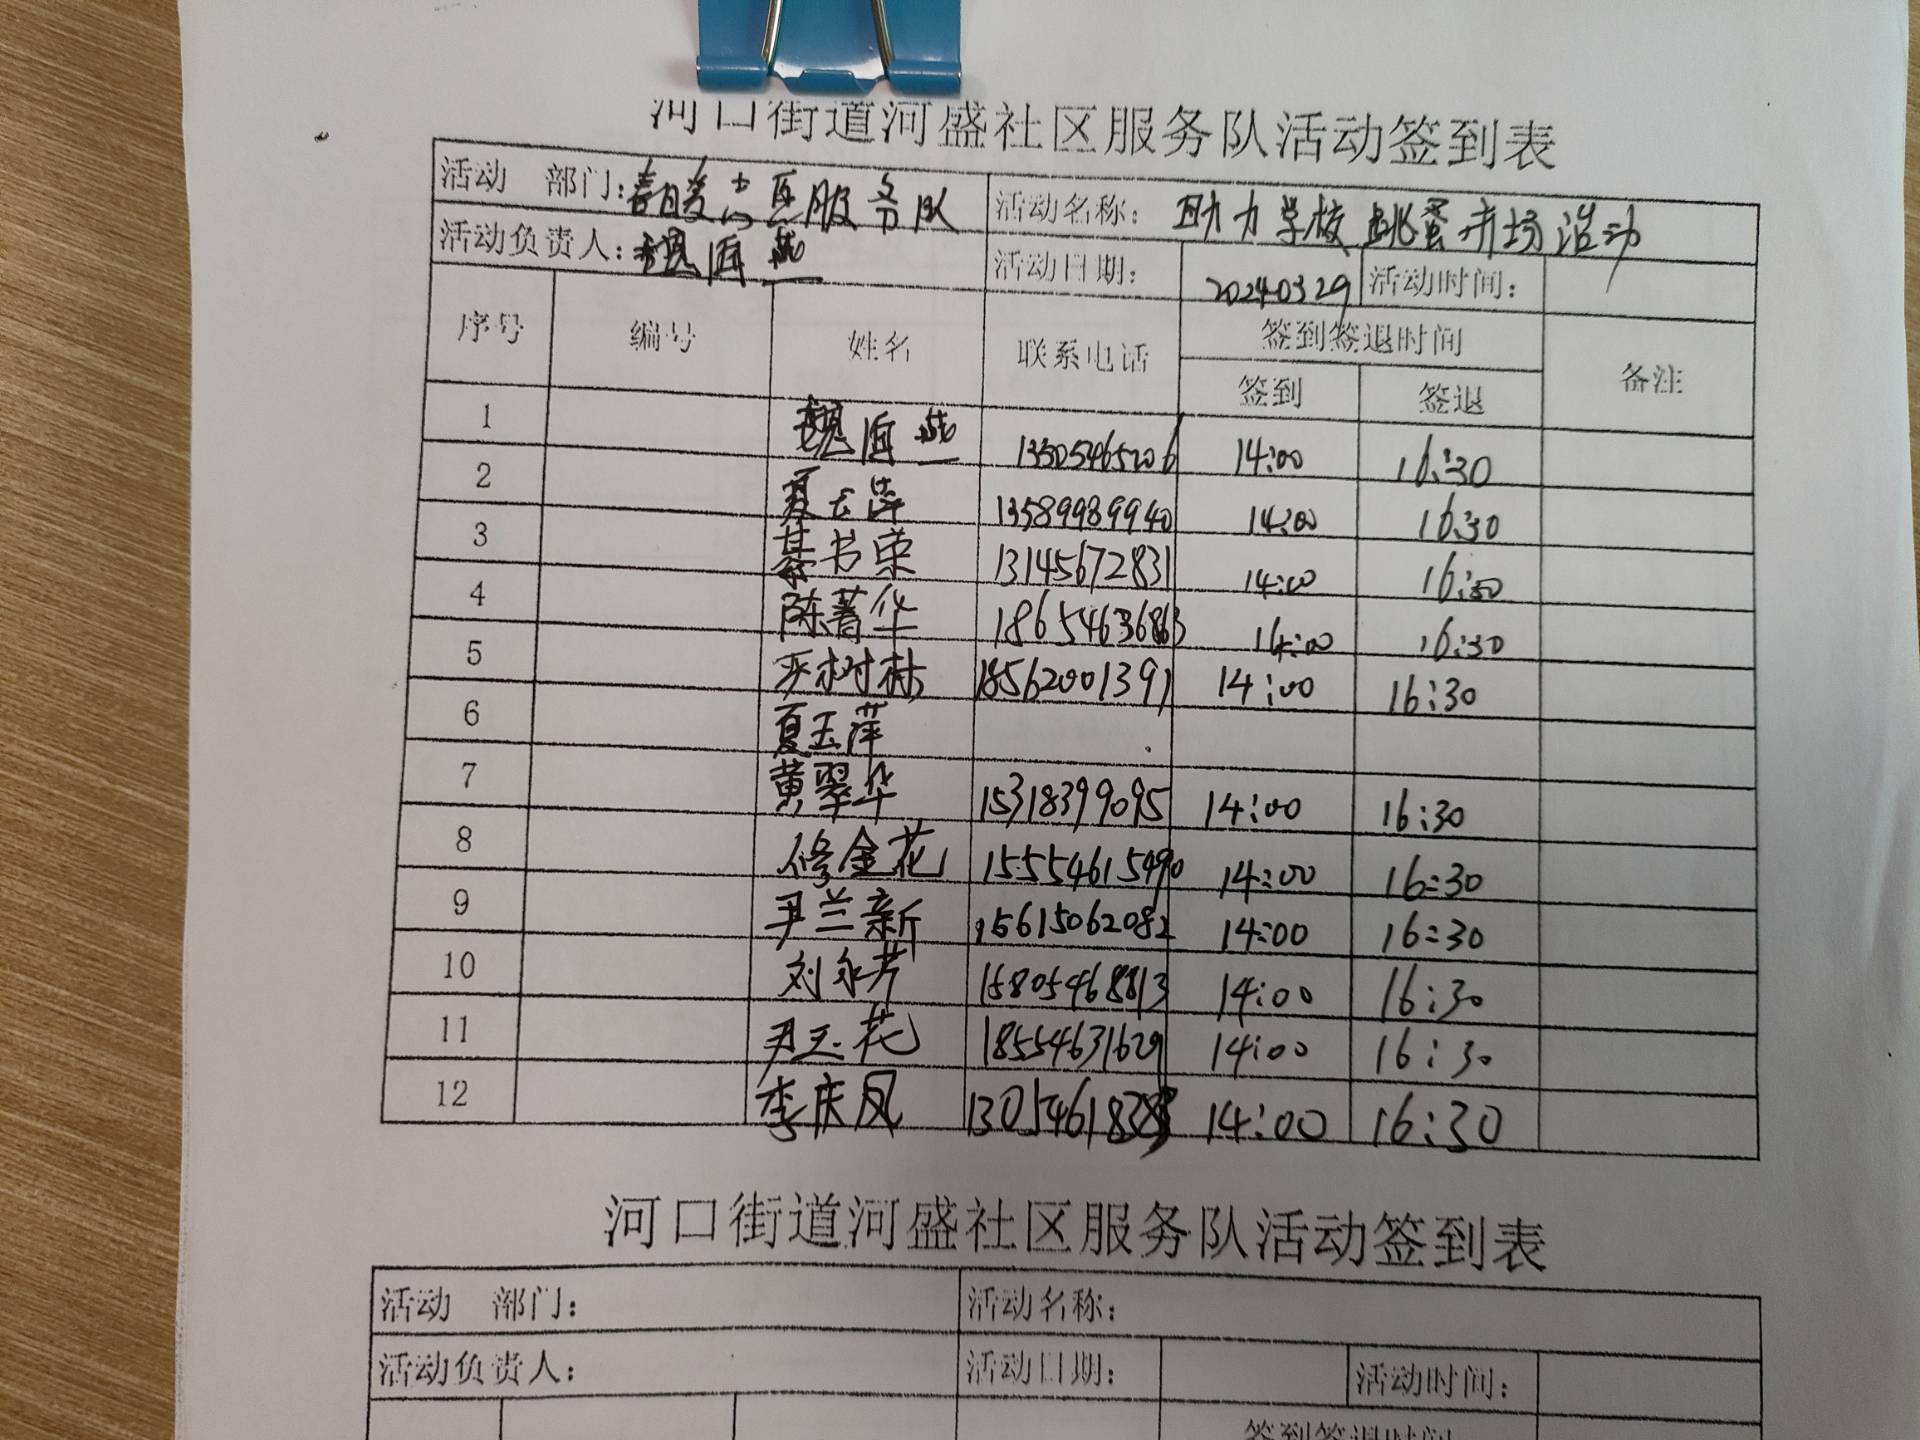 河口街道河盛社区服务队活动签到表
活动 部门: 服务队 活动名称: 助力学校跳蚤市场活动
活动负责人: 魏海燕 活动日期: 20240329 活动时间:
序号 编号 姓名 联系电话 签到签退时间 备注
签到 签退
1 魏海燕 13505465206 14:00 16:30
2 夏玉萍 13589989940 14:00 16:30
3 綦书荣 13145672831 14:00 16:30
4 陈菁华 18654636863 14:00 16:30
5 树林 18562001391 14:00 16:30
6 夏玉萍
7 黄翠华 15318399095 14:00 16:30
8 修金花 15554615490 14:00 16:30
9 尹兰新 15615062082 14:00 16:30
10 刘永芳 15805468813 14:00 16:30
11 尹玉花 18554631629 14:00 16:30
12 李庆凤 14:00 16:30
河口街道河盛社区服务队活动签到表
活动 部门: 活动名称:
活动负责人: 活动日期: 活动时间:
签到签退时间